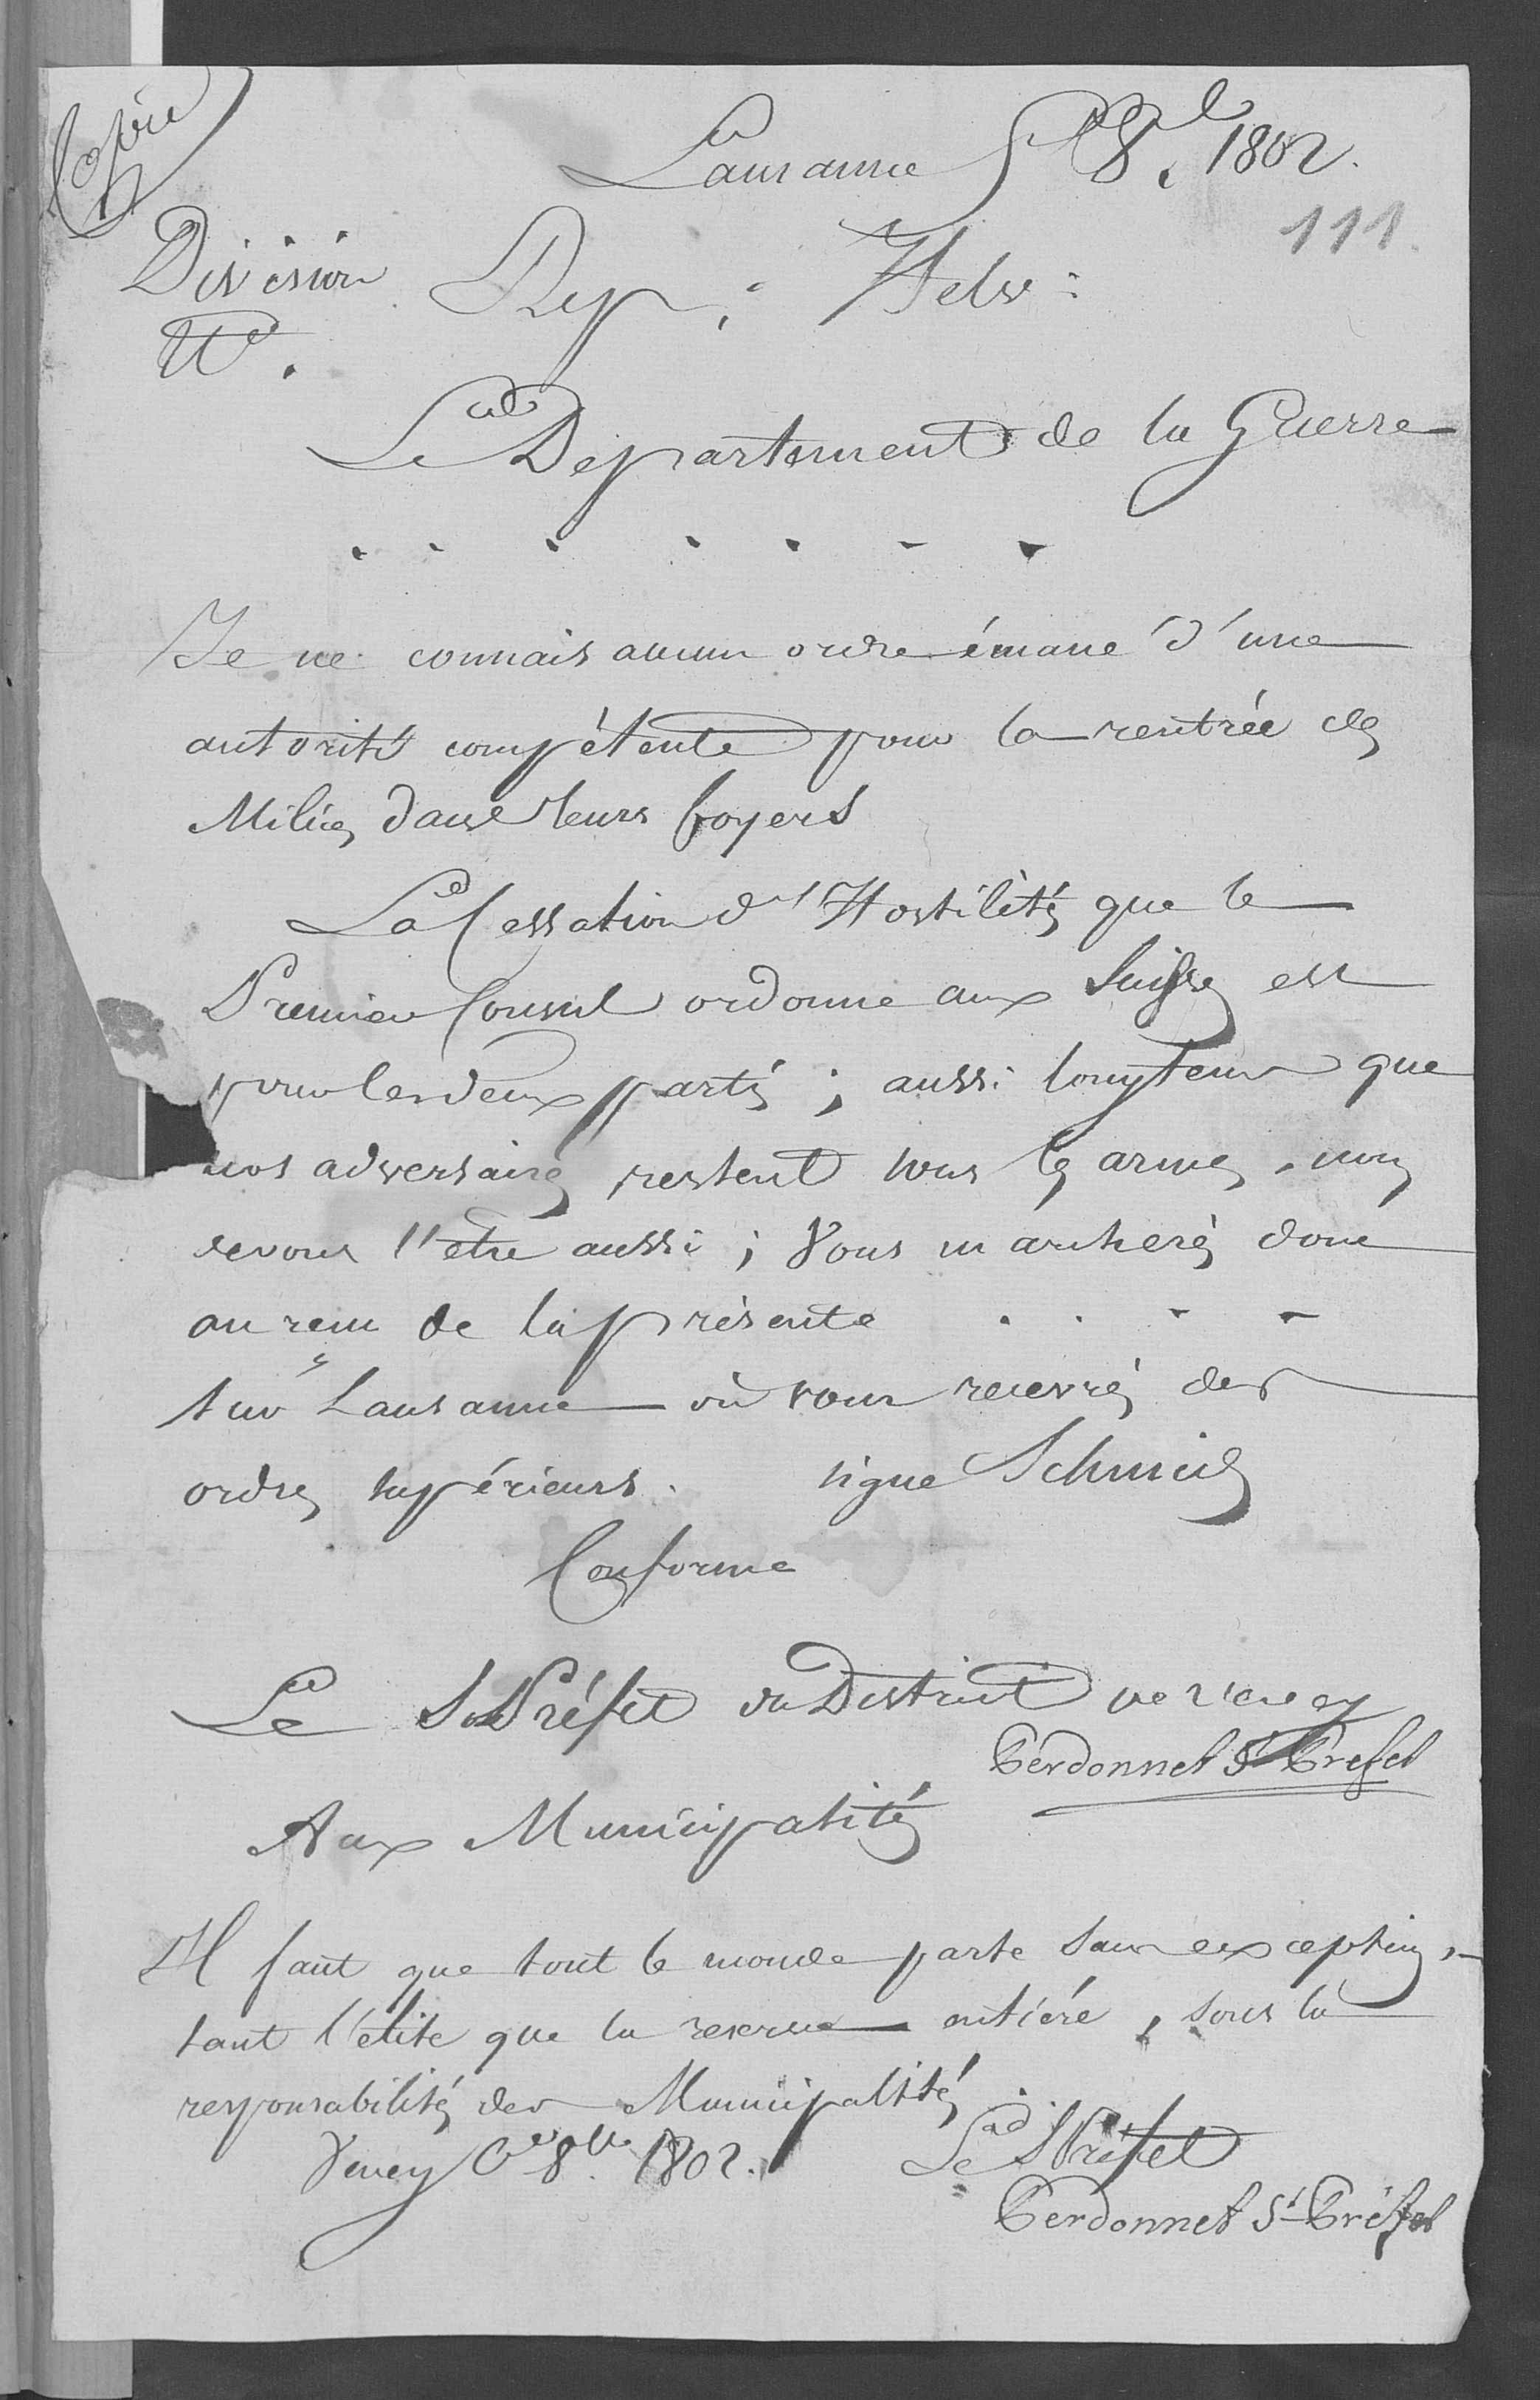 Copie
Lausanne 5 8.e 1802.
111.
Division Rep: Helv:
N.º
Le Departement de la Guerre
Je ne connais aucun ordre émané d'une
autorité compétente pour la rentrée des
Milices dans leurs foyers
La Cessation d'Hostilités que le
Premier Consul ordonne aux Suisses est
pour les deux partis ; aussi longtems que
nos adversaires restent sous les armes, nous
devons l'etre aussi ; Vous marcherés donc
au reçu de la présente . . . .
sur Lausanne où vous recevrés des
ordres supérieurs. signe Schmid
Conforme
Le S. Préfet du District de Vevey
Perdonnet St Prefet
Aux Municipalités
Il faut que tout le monde parte sans exception,
tant l'elite que la reserve entiére, sous la
responsabilité des Municipalités
Vevey Ce 8bre 1802. Le S Préfet
Perdonnet St Préfet